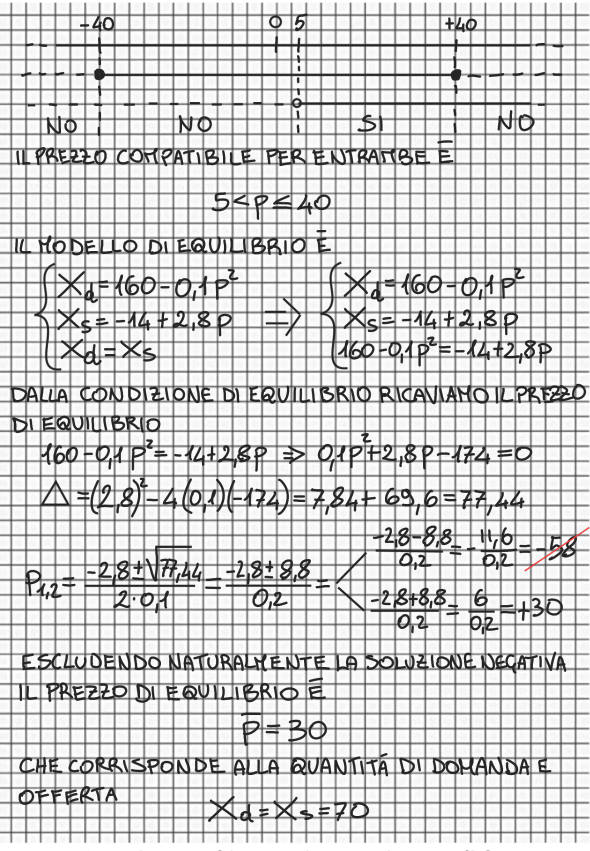 -40 0 5 +40
NO NO SI NO
IL PREZZO COMPATIBILE PER ENTRAMBE Ē
5<p≤40
IL MODELLO DI EQUILIBRIO Ē
{ Xd=160-0,1p² { Xd=160-0,1p²
Xs=-14+2,8p ⇒ Xs=-14+2,8p
Xd=Xs 160-0,1p²=-14+2,8p
DALLA CONDIZIONE DI EQUILIBRIO RICAVIAMO IL PREZZO
DI EQUILIBRIO
160-0,1p²=-14+2,8p ⇒ 0,1p²+2,8p-174=0
△=(2,8)²-4(0,1)(-174)=7,84+69,6=77,44
P1,2= (-2,8±√77,44)/(2·0,1) = (-2,8±8,8)/0,2 =
(-2,8-8,8)/0,2 = -11,6/0,2 = -58
(-2,8+8,8)/0,2 = 6/0,2 = +30
ESCLUDENDO NATURALMENTE LA SOLUZIONE NEGATIVA
IL PREZZO DI EQUILIBRIO Ē
p̅=30
CHE CORRISPONDE ALLA QUANTITÁ DI DOMANDA E
OFFERTA
Xd=Xs=70